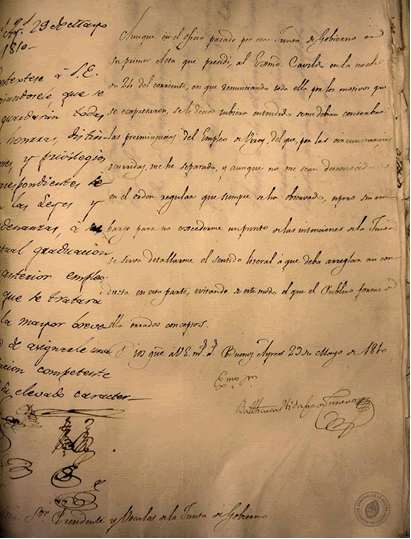 29 de Mayo
1810
Contextese à S.E.
que se
guardarán todas
honras, distin
es y privilegios
respondientes se
las Leyes y
denanzas, à su
tual graduacion
anterior empleo
que se tratará
la mayor breve
d de asignarle una
sicion competente
su elevado caracter
Aunque en el oficio pasado por esa Junta de Gobierno en
su primer Acta que presidí, al Exmo Cavildo en la noche
de 24 del corriente, en que renunciando toda ella por los motivos que
se expresaron, se
las preeminencias del Empleo de Virrey del que, por las circunstancias
ocurridas, me he separado, y aunque no me sean
en el órden regular que siempre se há observado, espero sin em
bargo para no excederme un punto de las intenciones de la Junta
se sirva detallarme el sentido literal à que deba arreglar mi con
ducta en esta parte, evitando de este modo el que el Publico forme
ella errados conceptos.
Dios gue à V.E. ms. as. Buenos Ayres 29 de Mayo de 1810
Exmo. Sor.
Balthasar Hidalgo de Cisneros
Sor. Presidente y Vocales de la Junta de Gobierno